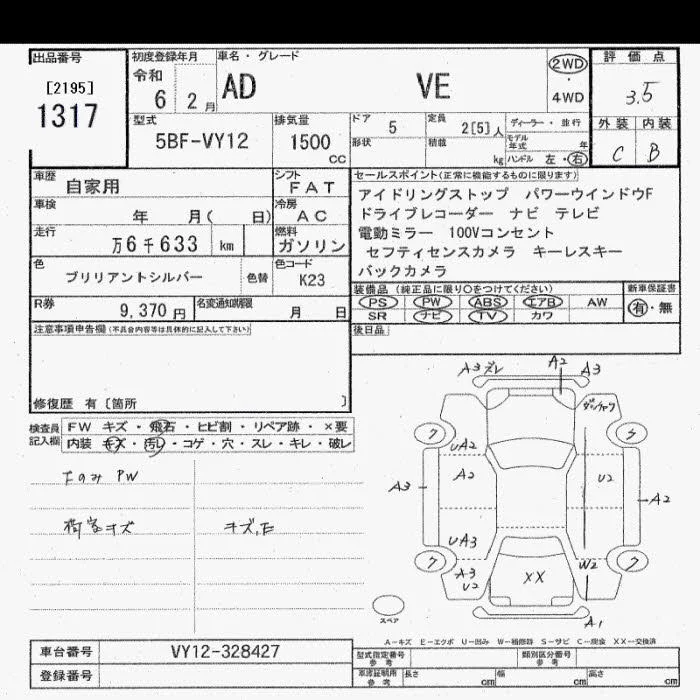 出品番号
[2195]
1317
初度登録年月
令和
6 2 月
車名・グレード
AD VE
2WD
・
4WD
評価点
3.5
型式
5BF-VY12
排気量
1500
CC
ドア 5
定員 2[5] 人
形状
積載 kg
ディーラー・並行
モデル年式 年
ハンドル 左・右
外装 内装
C B
車歴 自家用
シフト FAT
車検 年 月( 日)
冷房 AC
走行 万6千633 km
燃料 ガソリン
色 ブリリアントシルバー 色替
色コード K23
R券 9,370 円
名変通知期限 月 日
セールスポイント(正常に機能するものに限ります)
アイドリングストップ パワーウインドウF
ドライブレコーダー ナビ テレビ
電動ミラー 100Vコンセント
セフティセンスカメラ キーレスキー
バックカメラ
装備品(純正品に限り○をつけてください)
PS PW ABS エアB AW
SR ナビ TV カワ
新車保証書
有・無
後日品
注意事項申告欄(不具合内容等は具体的に記入して下さい)
修復歴 有〔箇所 〕
検査員記入欄
FW キズ・飛石・ヒビ割・リペア跡・×要
内装 キズ・汚レ・コゲ・穴・スレ・キレ・破レ
下のみ PW
荷室キズ
キズ,E
A3 ズレ A2 A3
7 5
UA2
A3 A2 U2 A2
UA3
7 W2 7
A3
U2
XX
A1
スペア
A-キズ E-エクボ U-凹み W-補修跡 S-サビ C-腐食 XX-交換済
車台番号 VY12-328427
登録番号
型式指定番号
参考
類別区分番号
参考
車庫証明用
参考
長さ cm 幅 cm 高さ cm